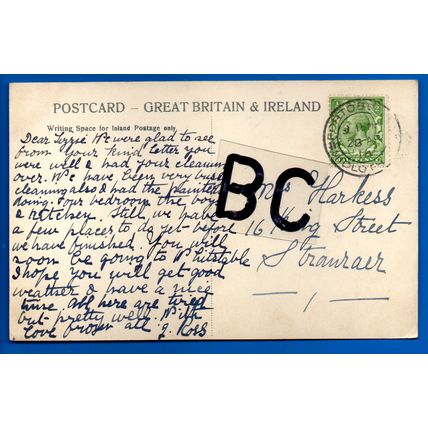 POSTCARD - GREAT BRITAIN & IRELAND
Writing Space for Inland Postage only
Dear Lizzie We were glad to see
from your kind letter you
were well & had your cleaning
over. We have been very busy
cleaning also & had the painter
doing. Four bedroom the boys
& Kitchen. Still, we have
a few places to do yet before
we have finished. You will
soon be going to Whitstable
I hope you will get good
weather & have a nice
time. All here are tired
but pretty well. With
love from all J. Ross
BC
Mrs Harkess
16 King Street
Stranraer